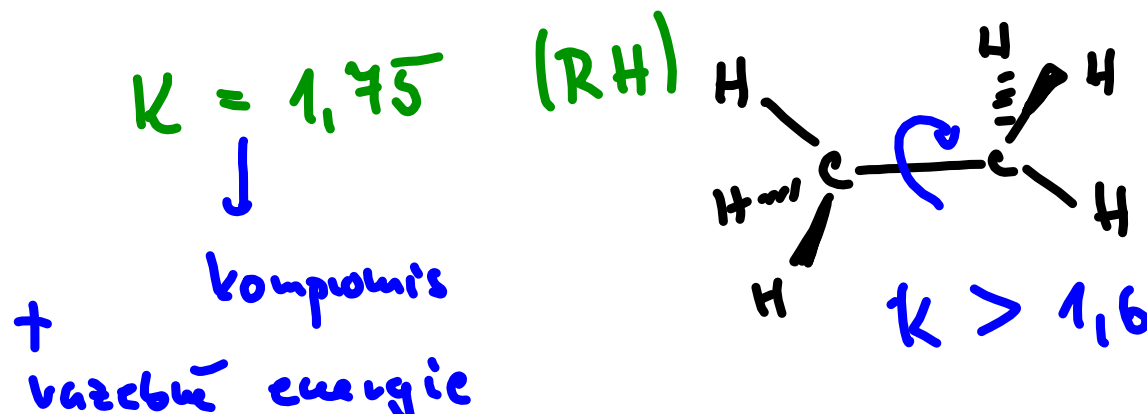 K = 1,75 (RH)
kompromis
+
vazebné energie
H
H
H
H
H
H
C
C
K > 1,6